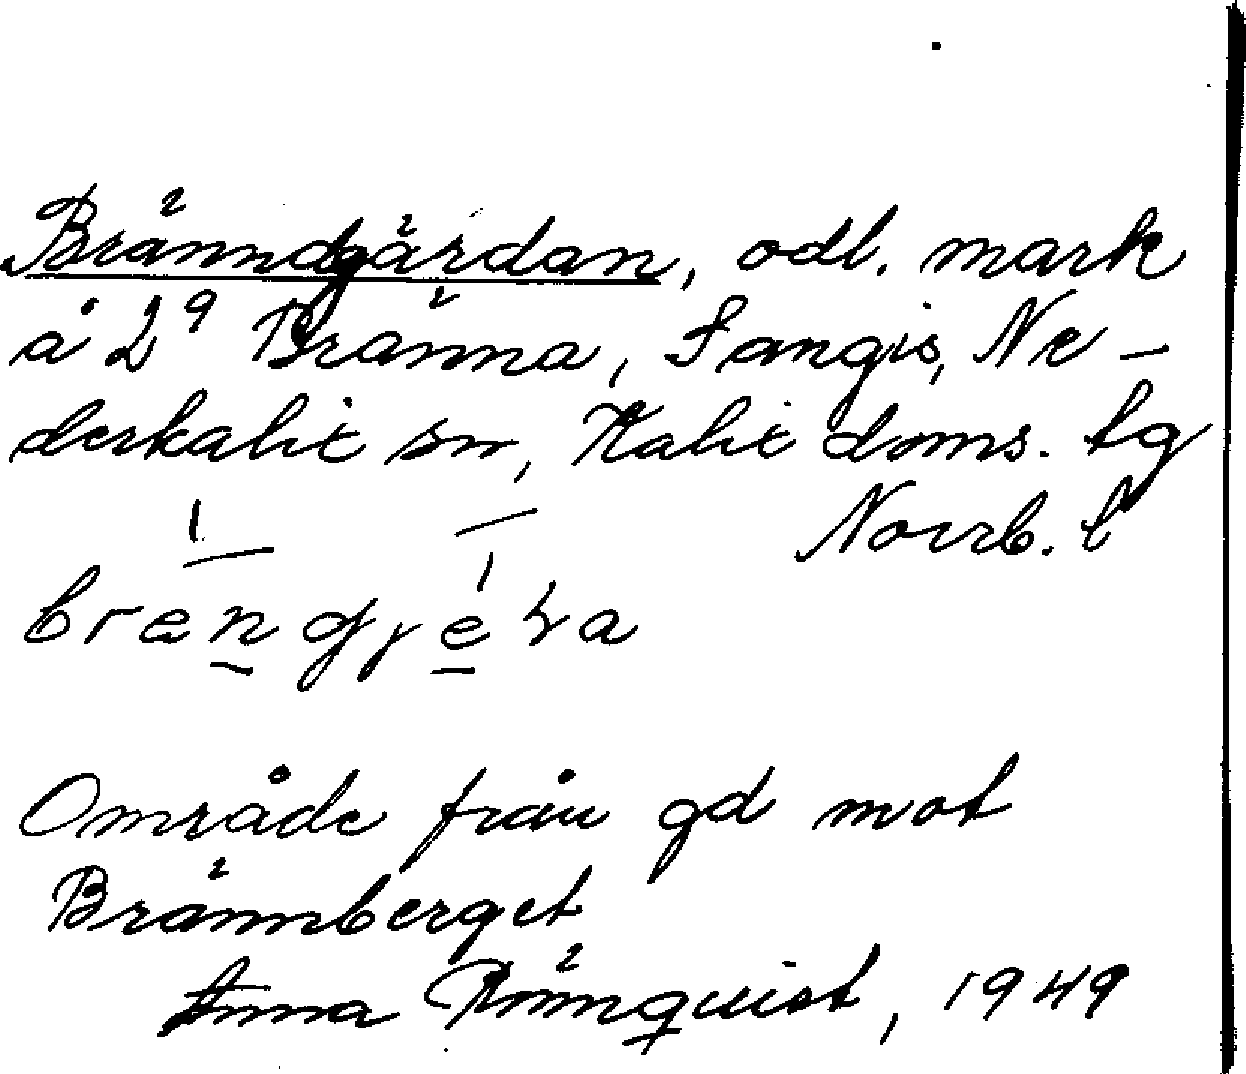 Bränndgärdan, odl. mark
å 2⁹ Bränna, Sangis, Ne-
derkalix sn, Kalix doms. tg
Norrb. l
brengjeṛa
Område från gd mot
Brännberget
Anna Rönnquist, 1949